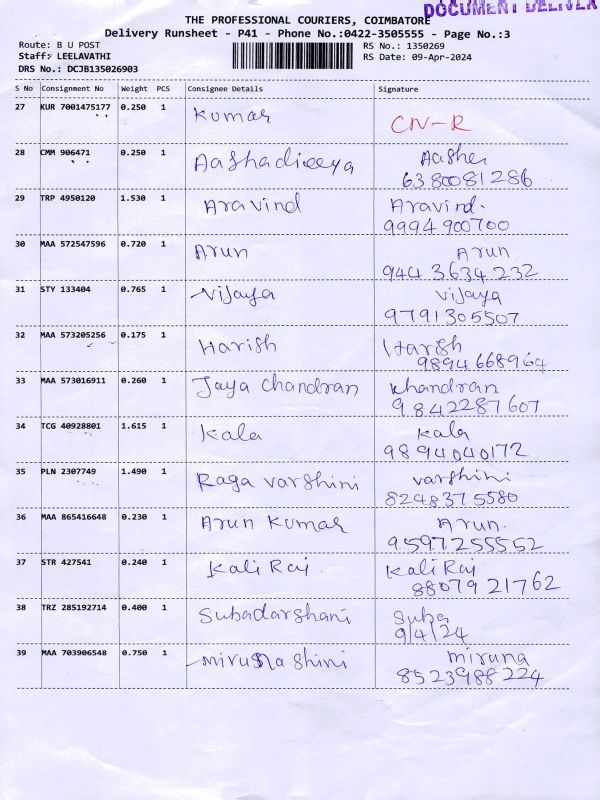 DOCUMENT DELIVER
THE PROFESSIONAL COURIERS, COIMBATORE
Delivery Runsheet - P41 - Phone No.:0422-3505555 - Page No.:3
Route: B U POST RS No.: 1350269
Staff: LEELAVATHI RS Date: 09-Apr-2024
DRS No.: DCJB135026903
S No Consignment No Weight PCS Consignee Details Signature
27 KUR 7001475177 0.250 1 Kumar CN-R
28 CMM 906471 0.250 1 Aashadieeya Aasher
6380081286
29 TRP 4950120 1.530 1 Aravind Aravind.
9994900700
30 MAA 572547596 0.720 1 Arun Arun
944 3634 232
31 STY 133404 0.765 1 Vijaya Vijaya
9791305507
32 MAA 573205256 0.175 1 Harish Harish
9894668964
33 MAA 573016911 0.260 1 Jaya chandran Khandran
9842287607
34 TCG 40928801 1.615 1 Kala Kala
9894040172
35 PLN 2307749 1.490 1 Raga varshini varshini
8248375580
36 MAA 865416648 0.230 1 Arun Kumar Arun.
9597255552
37 STR 427541 0.240 1 Kali Raj Kali Raj
8807921762
38 TRZ 285192714 0.400 1 Subadarshani Suba
9/4/24
39 MAA 703906548 0.750 1 mirunashini miruna
8523988224